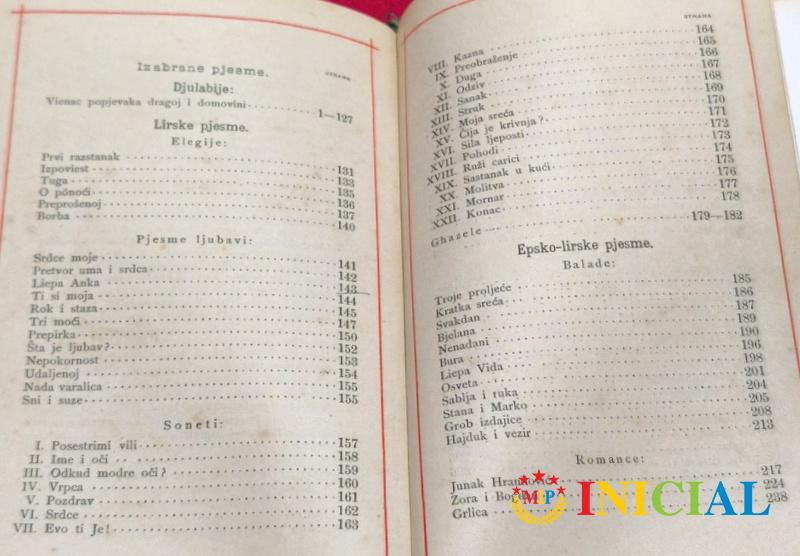 Izabrane pjesme.
STRANA
Djulabije:
Vienac popjevaka dragoj i domovini 1—127
Lirske pjesme.
Elegije:
Prvi razstanak 131
Izpoviest 133
Tuga 135
O ponoći 136
Preprošenoj 137
Borba 140
Pjesme ljubavi:
Srdce moje 141
Pretvor uma i srdca 142
Liepa Anka 143
Ti si moja 144
Rok i staza 145
Tri moći 147
Prepirka 150
Šta je ljubav? 152
Nepokornost 153
Udaljenoj 154
Nada varalica 155
Sni i suze 155
Soneti:
I. Posestrimi vili 157
II. Ime i oči 158
III. Odkud modre oči? 159
IV. Vrpca 160
V. Pozdrav 161
VI. Srdce 162
VII. Evo ti Je! 163
STRANA
VIII. Kazna 164
IX. Preobraženje 165
X. Duga 166
XI. Odziv 167
XII. Sanak 168
XIII. Struk 169
XIV. Moja sreća 170
XV. Čija je krivnja? 171
XVI. Sila ljeposti 172
XVII. Pohodi 173
XVIII. Ruži carici 174
XIX. Sastanak u kući 175
XX. Molitva 176
XXI. Mornar 177
XXII. Konac 178
Ghazele 179—182
Epsko-lirske pjesme.
Balade:
Troje proljeće 185
Kratka sreća 186
Svakdan 187
Bjelana 189
Nenadani 190
Bura 196
Liepa Vida 198
Osveta 201
Sablja i ruka 204
Stana i Marko 205
Grob izdajice 208
Hajduk i vezir 213
Romance:
Junak 217
Zora i 224
Grlica 238
MIP INICIAL